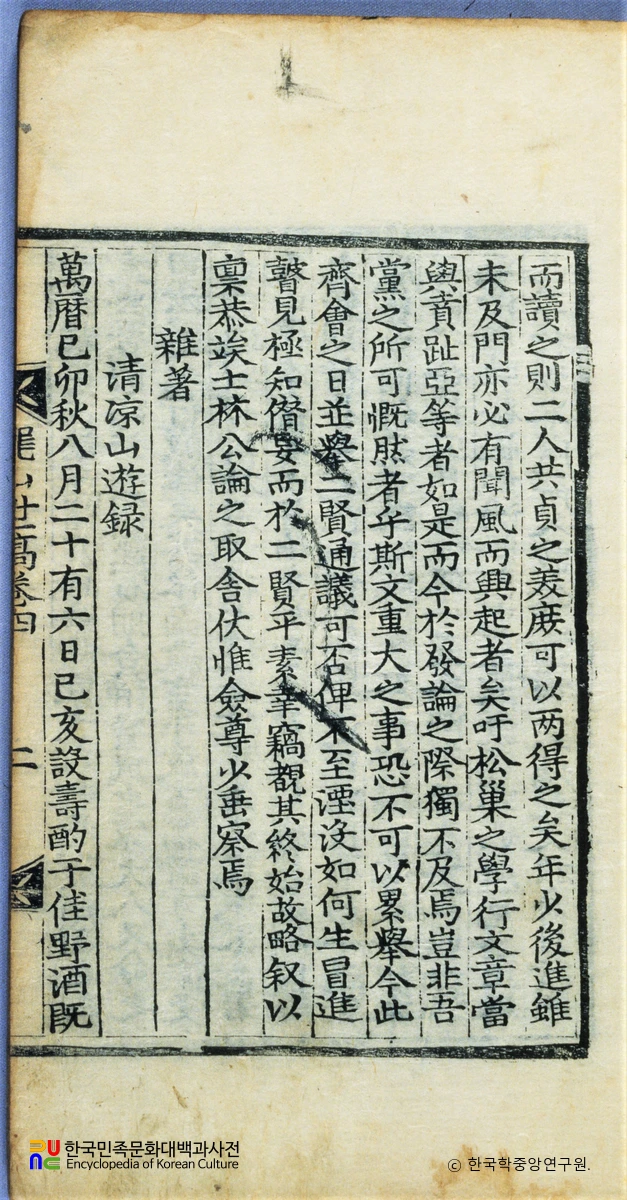 而讀之則二人共貞之美庶可以两得之矣年少後進雖
未及門亦必有聞風而興起者矣吁松巢之學行文章當
與賁趾亞等者如是而今於發論之際獨不及焉豈非吾
黨之所可慨然者乎斯文重大之事恐不可以累舉今此
齊會之日並舉二賢通議可否俾不至湮没如何生冒進
瞽見極知僭妄而於二賢平素幸竊覩其終始故略叙以
禀恭竢士林公論之取舍伏惟僉尊少垂察焉
雜著
清凉山遊録
萬曆己卯秋八月二十有六日己亥設壽酌于佳野酒既
山世稿卷四 二
한국민족문화대백과사전
Encyclopedia of Korean Culture
© 한국학중앙연구원.